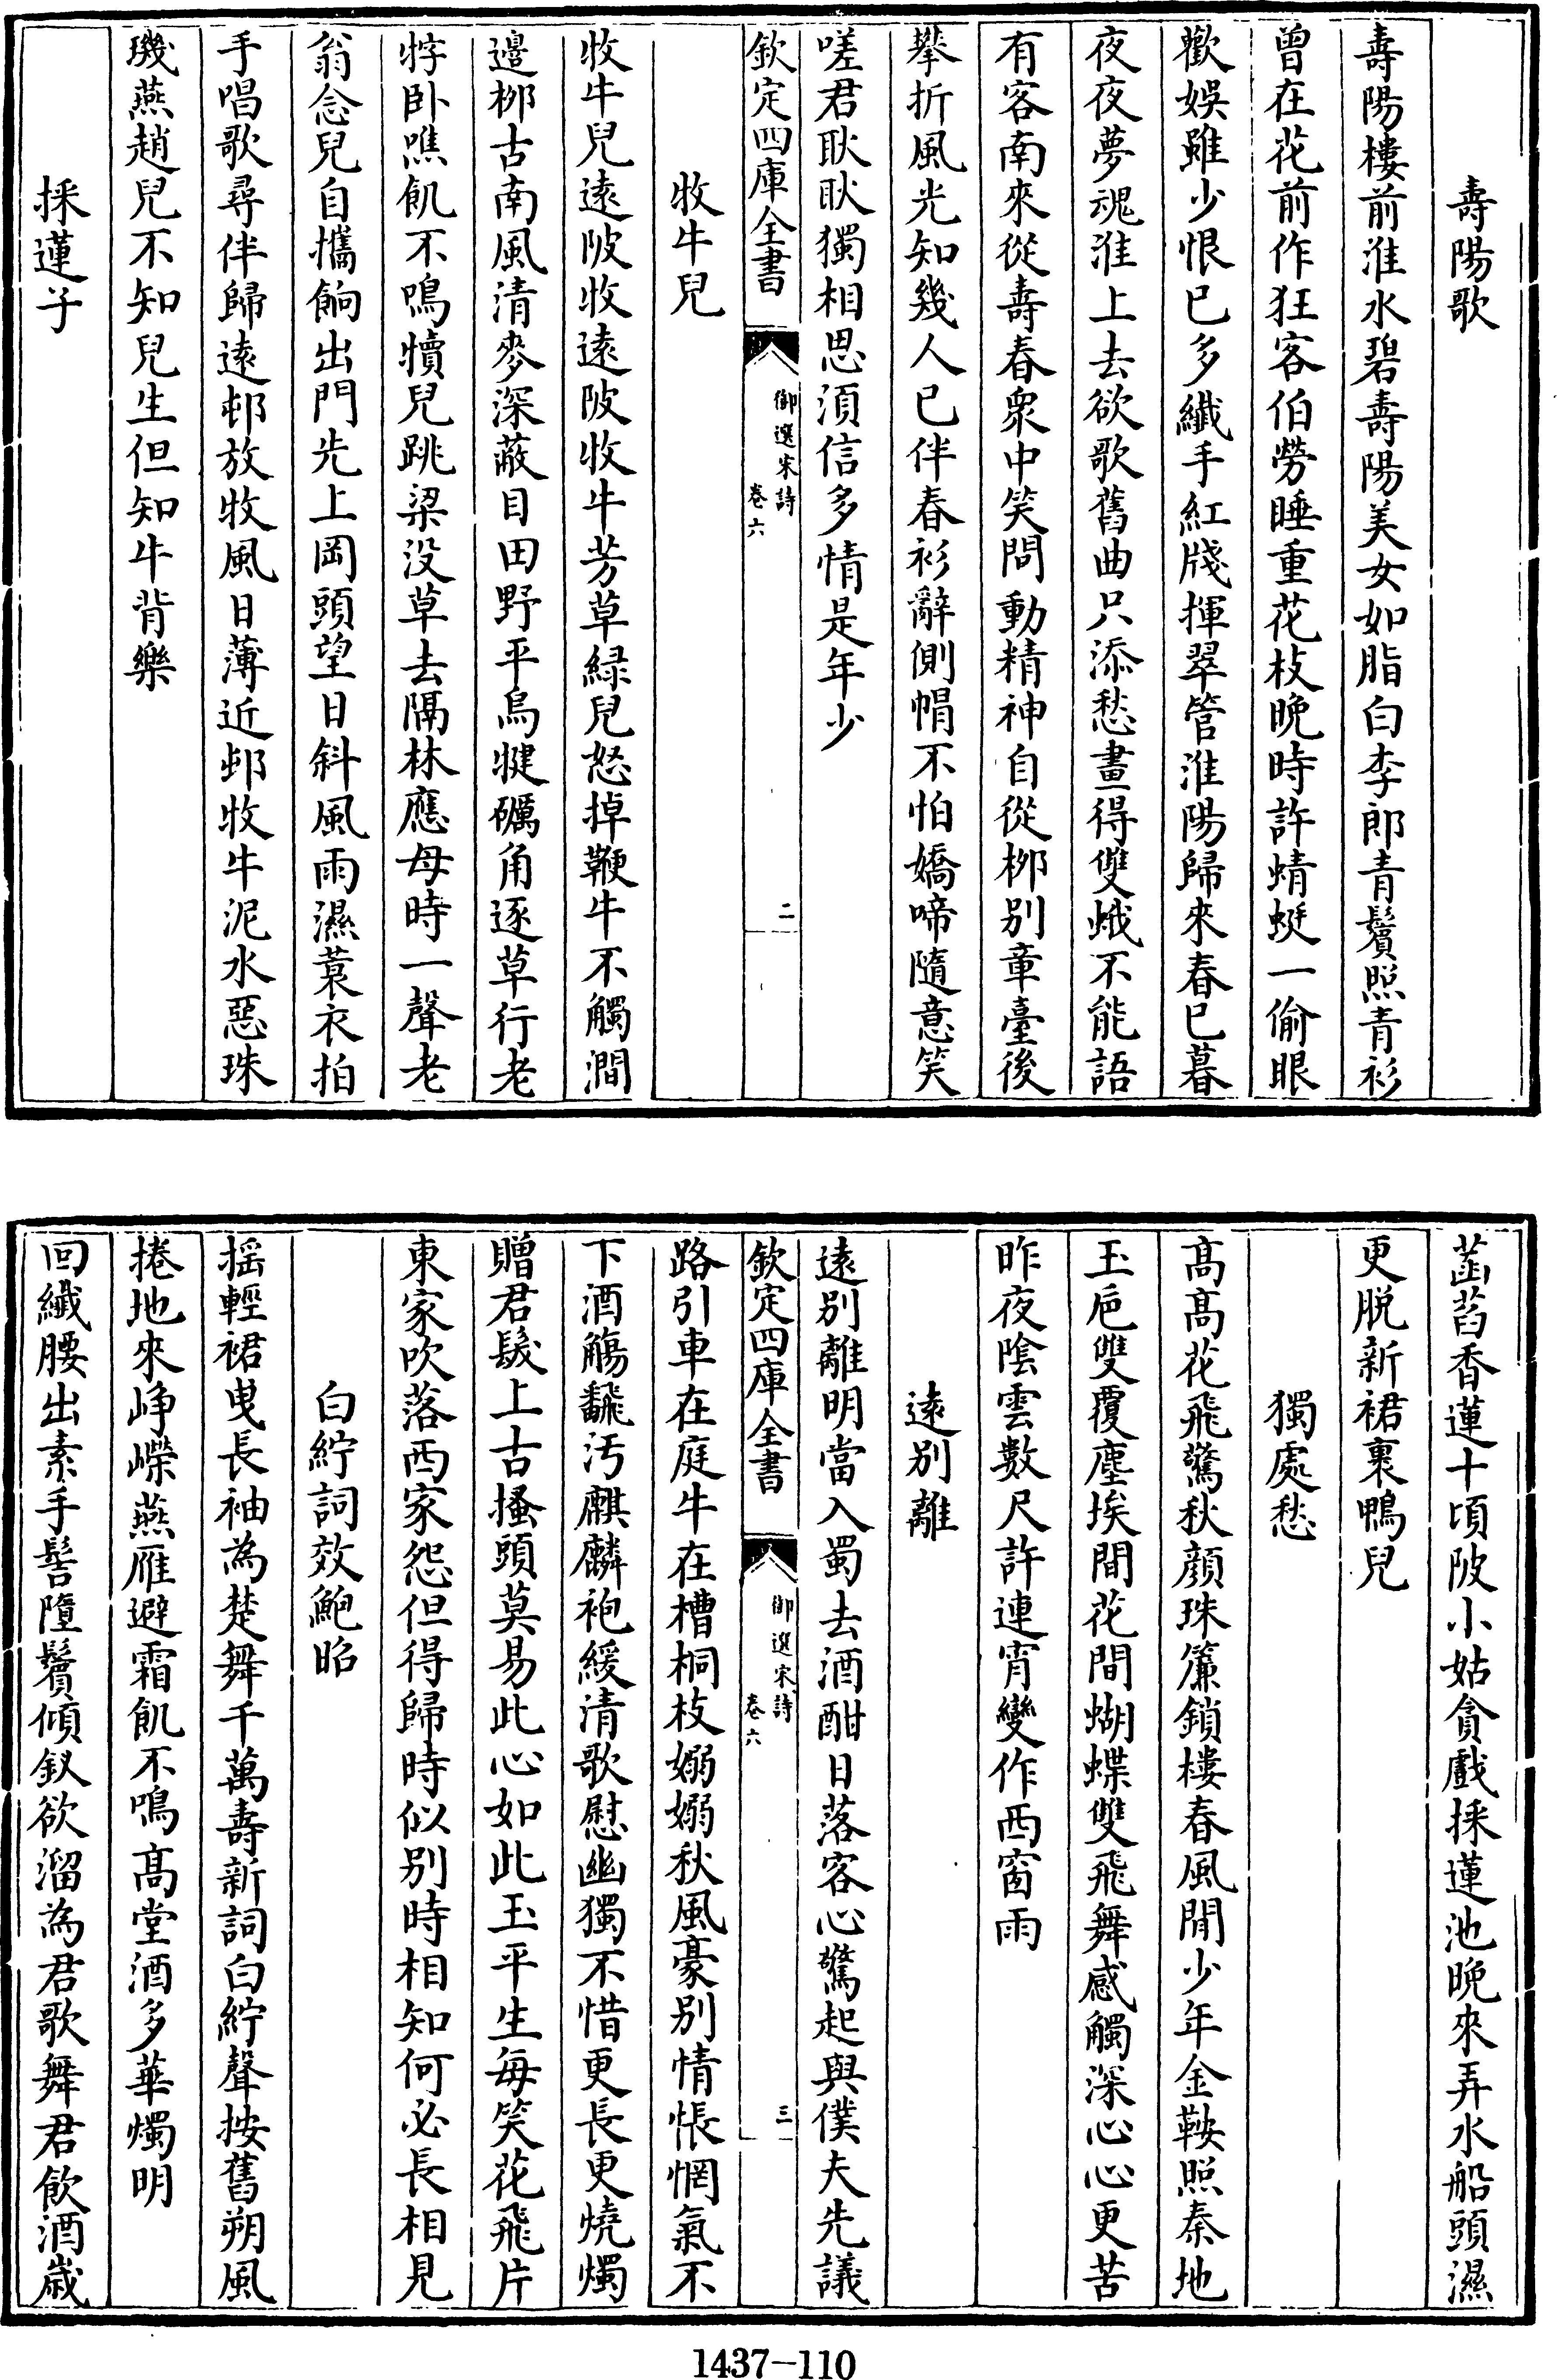 壽陽歌
壽陽樓前淮水碧壽陽美女如脂白李郎青鬢照青衫
曾在花前作狂客伯勞睡重花枝晚時許蜻蜓一偷眼
歡娛雖少恨已多纖手紅牋揮翠管淮陽歸來春已暮
夜夜夢魂淮上去欲歌舊曲只添愁畫得雙蛾不能語
有客南來從壽春衆中笑問動精神自從栁別章臺後
攀折風光知幾人已伴春衫辭側帽不怕嬌啼隨意笑
嗟君耿耿獨相思須信多情是年少
欽定四庫全書
御選宋詩
卷六
二
牧牛兒
牧牛兒逺陂牧逺陂牧牛芳草緑兒怒掉鞭牛不觸澗
邊栁古南風清麥深蔽目田野平烏犍礪角逐草行老
牸卧噍飢不鳴犢兒跳梁没草去隔林應母時一聲老
翁念兒自攜餉出門先上岡頭望日斜風雨濕蓑衣拍
手唱歌尋伴歸逺邨放牧風日薄近邨牧牛泥水惡珠
璣燕趙兒不知兒生但知牛背樂
採蓮子
菡萏香蓮十頃陂小姑貪戲採蓮池晚來弄水船頭濕
更脱新裙裹鴨兒
獨處愁
髙髙花飛驚秋顔珠簾鎖樓春風閒少年金鞍照秦地
玉巵雙覆塵埃間花間蝴蝶雙飛舞感觸深心心更苦
昨夜陰雲數尺許連宵變作西窗雨
逺別離
逺別離明當入蜀去酒酣日落客心驚起與僕夫先議
欽定四庫全書
御選宋詩
卷六
三
路引車在庭牛在槽桐枝嫋嫋秋風豪別情悵惘氣不
下酒觴飜汚麒麟袍緩清歌慰幽獨不惜更長更燒燭
贈君髮上古搔頭莫易此心如此玉平生每笑花飛片
東家吹落西家怨但得歸時似别時相知何必長相見
白紵詞效鮑昭
揺輕裙曳長袖為楚舞千萬壽新詞白紵聲按舊朔風
捲地來峥嶸燕雁避霜飢不鳴髙堂酒多華燭明
回纖腰出素手髻墮鬢傾釵欲溜為君歌舞君飲酒歳
1437—110